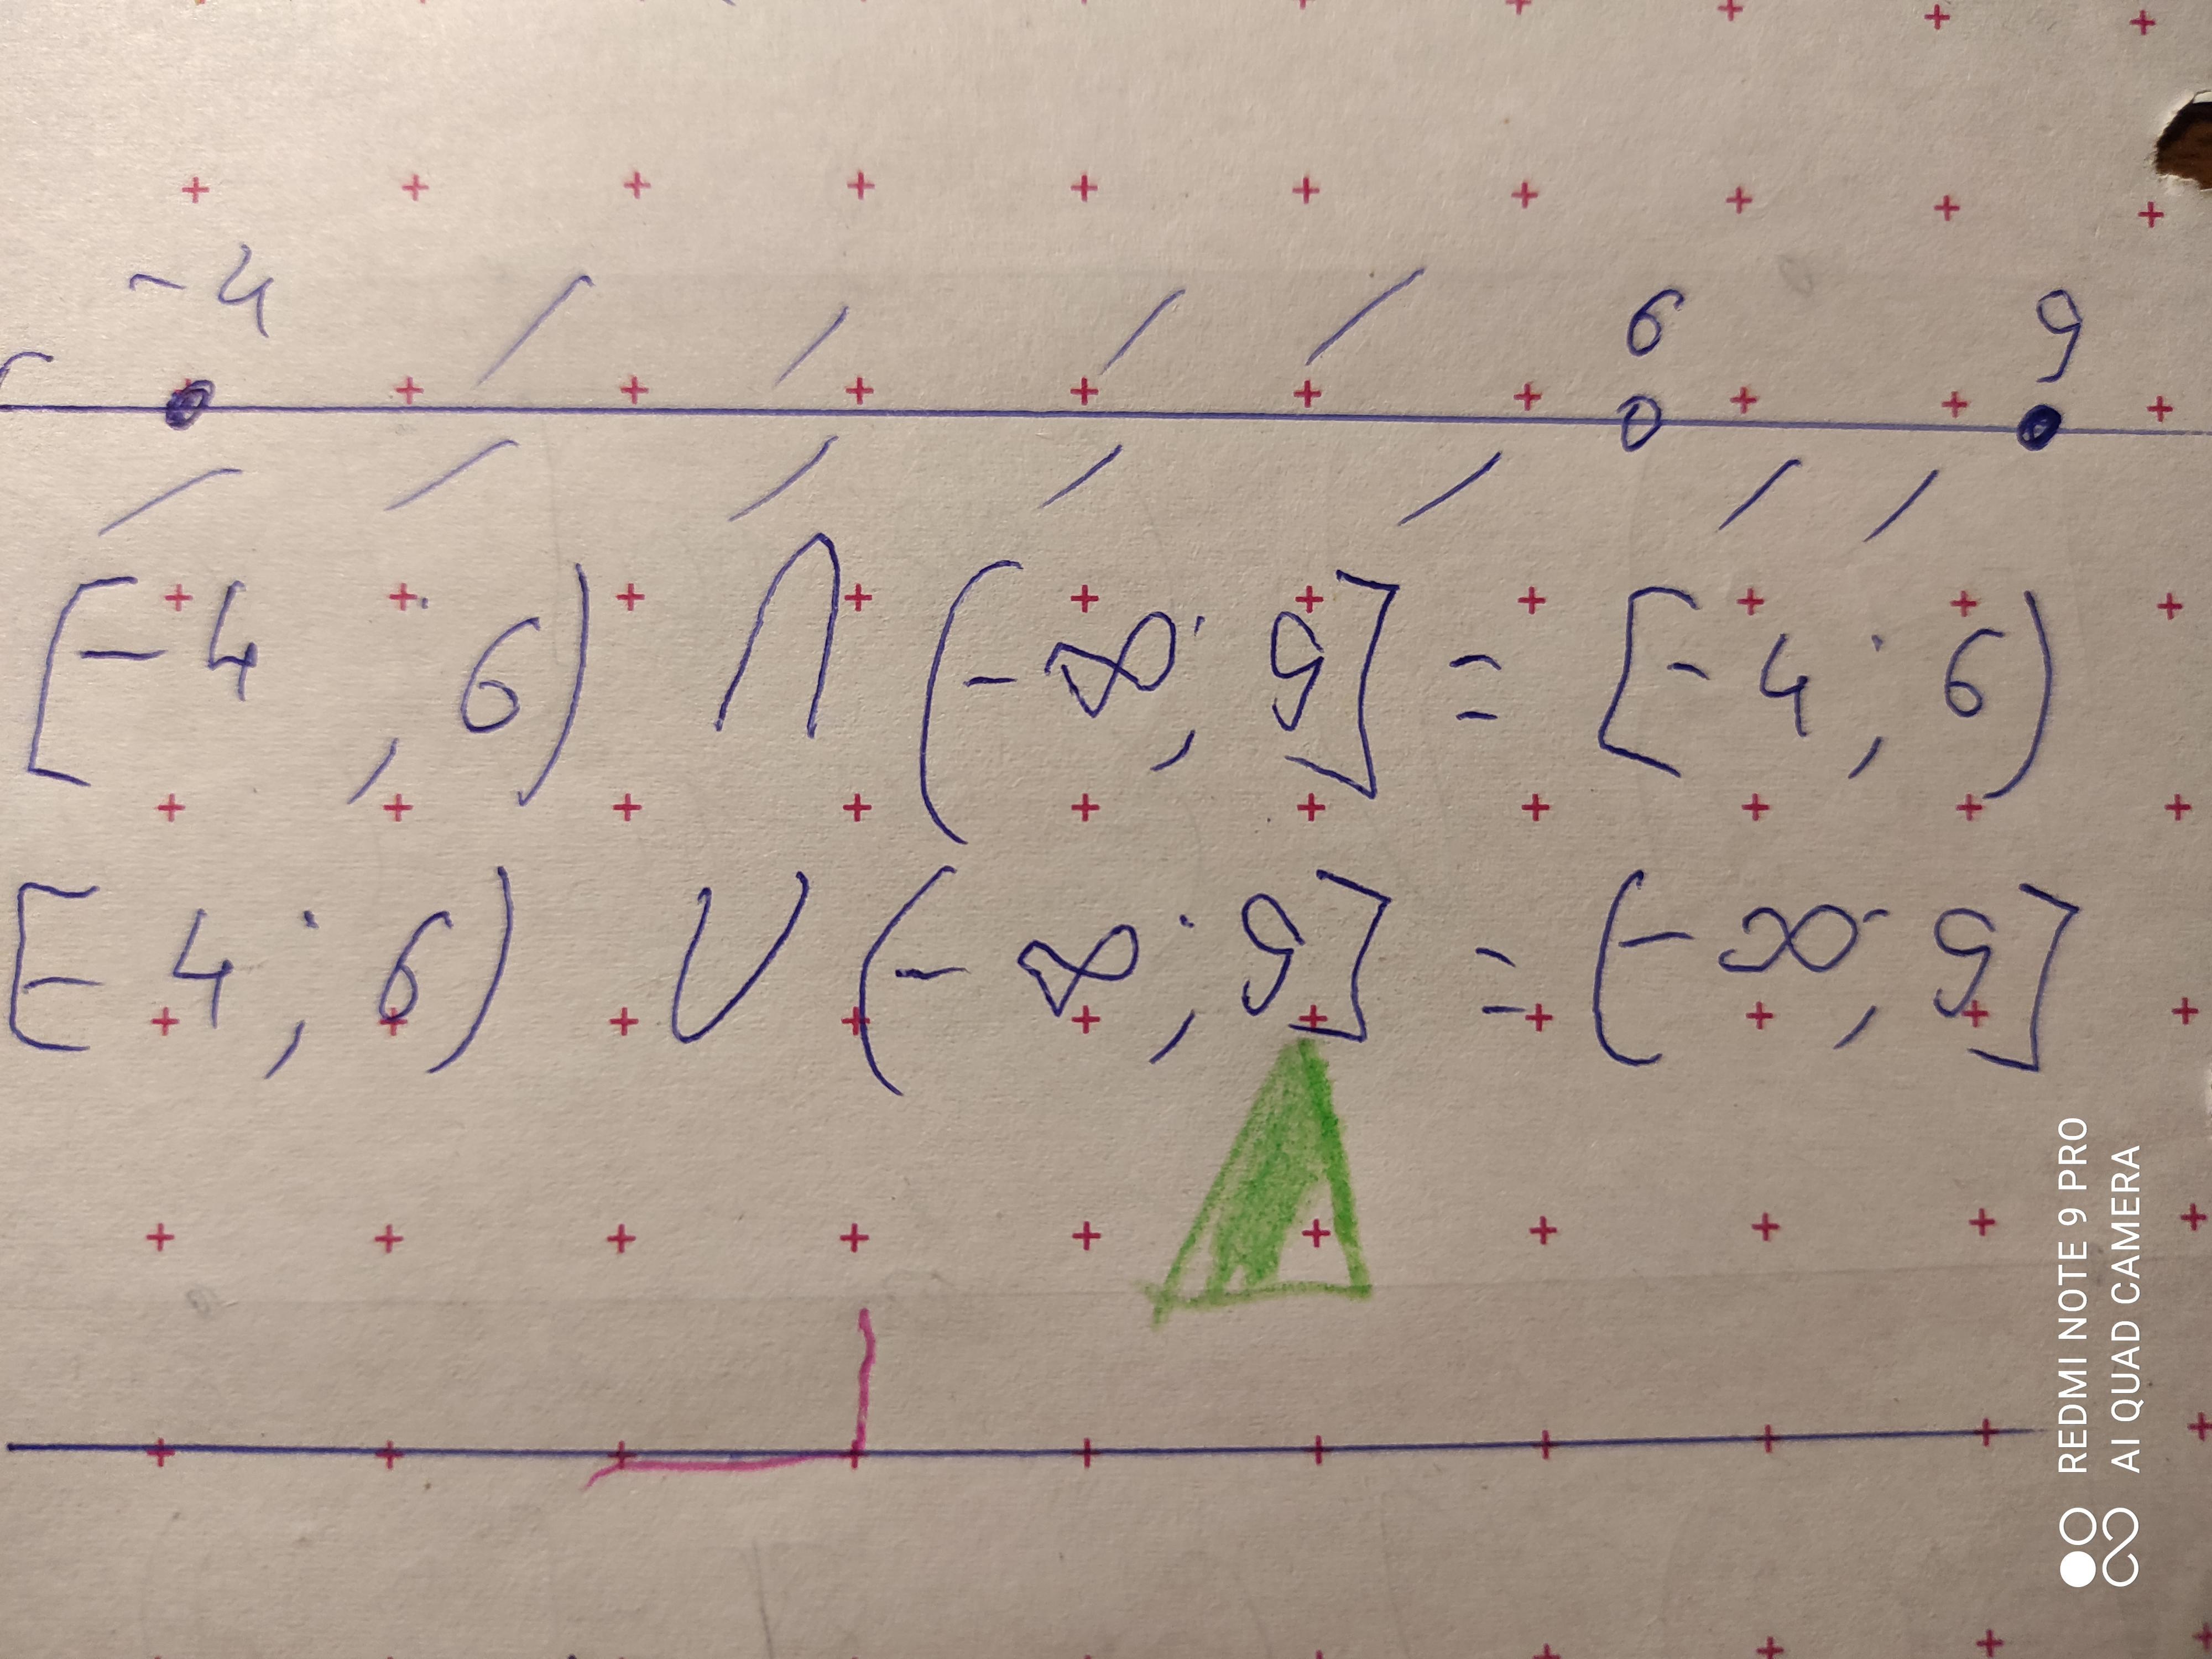 -4 6 9
[-4; 6) ∩ (-∞; 9] = [-4; 6)
[-4; 6) ∪ (-∞; 9] = (-∞; 9]
REDMI NOTE 9 PRO
AI QUAD CAMERA